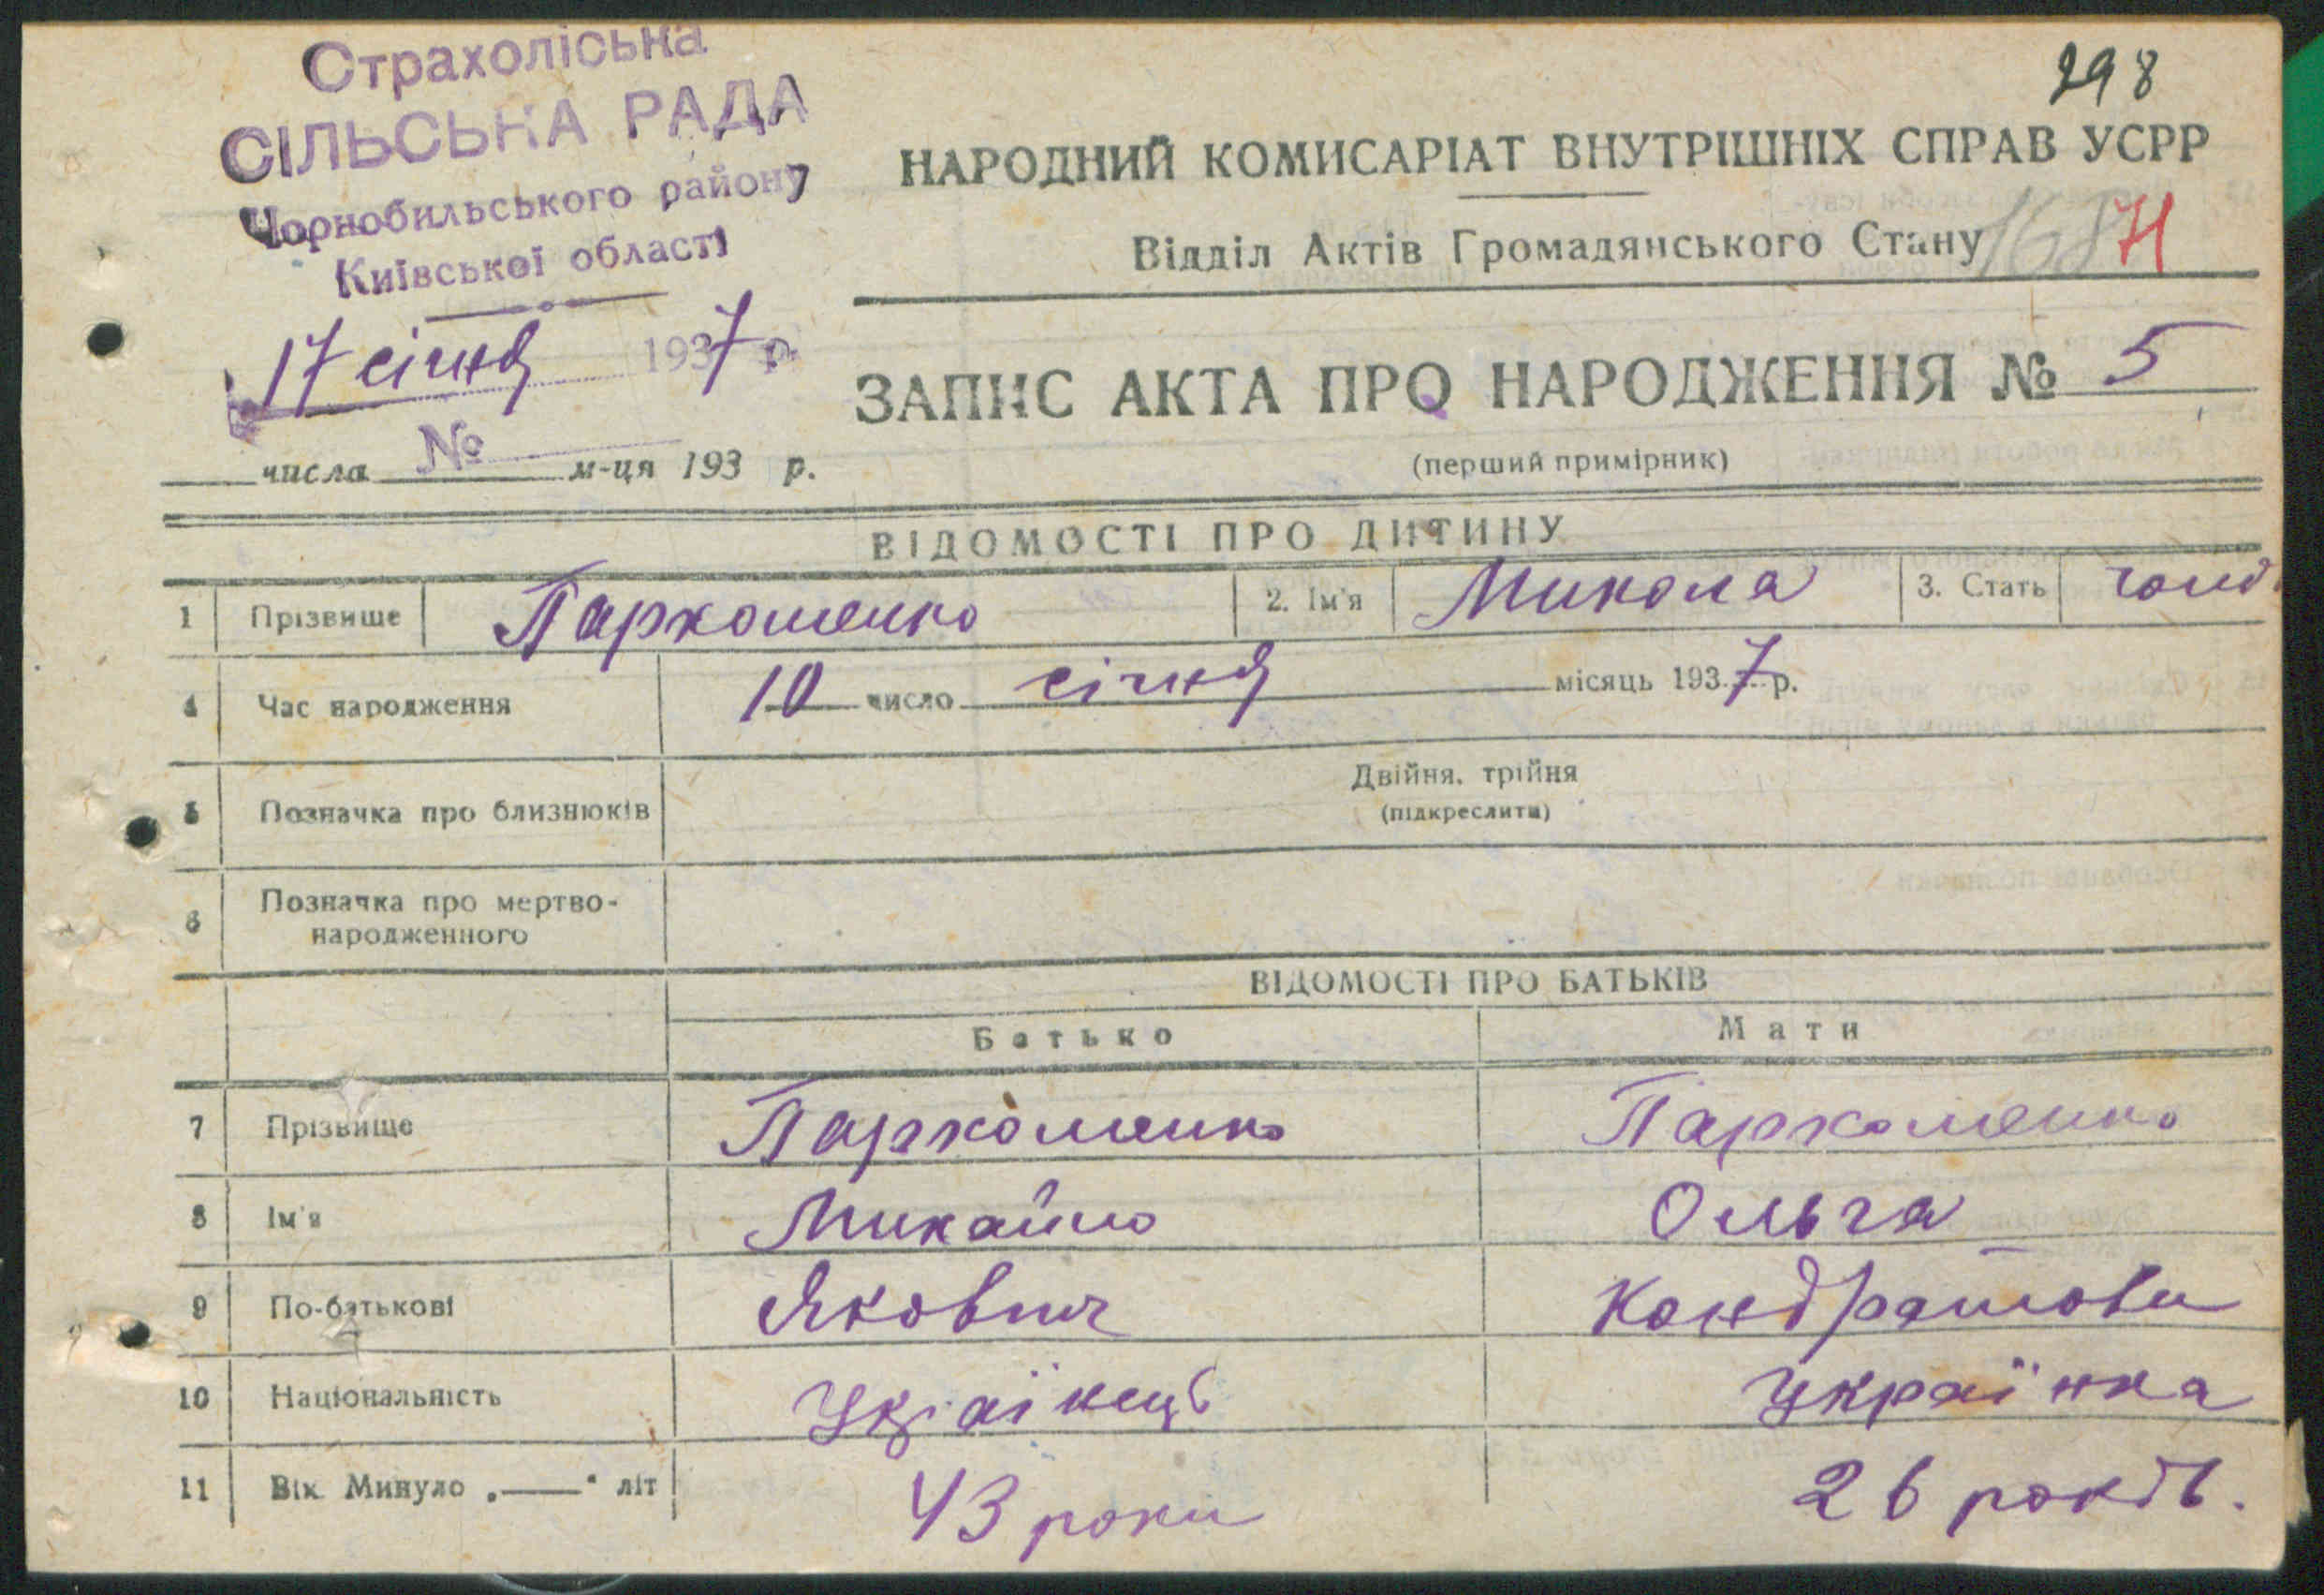 Страхоліська
СІЛЬСЬКА РАДА
Чорнобильського району
Київської області
17 січня 1937 р.
№
числа м-ця 193 р.
298
НАРОДНИЙ КОМИСАРІАТ ВНУТРІШНІХ СПРАВ УСРР
Відділ Актів Громадянського Стану
ЗАПИС АКТА ПРО НАРОДЖЕННЯ № 5
(перший примірник)
ВІДОМОСТІ ПРО ДИТИНУ
1 Прізвище Пархоменко 2. Ім'я Микола 3. Стать
4 Час народження 10 число січня місяць 1937 р.
5 Позначка про близнюків Двійня, трійня
(підкреслити)
6 Позначка про мертво-
народженного
ВІДОМОСТІ ПРО БАТЬКІВ
Батько Мати
7 Прізвище Пархоменко Пархоменко
8 Ім'я Михайло Ольга
9 По-батькові Якович Кондратови
10 Національність Українець Українка
11 Вік Минуло „——“ літ 43 роки 26 років.